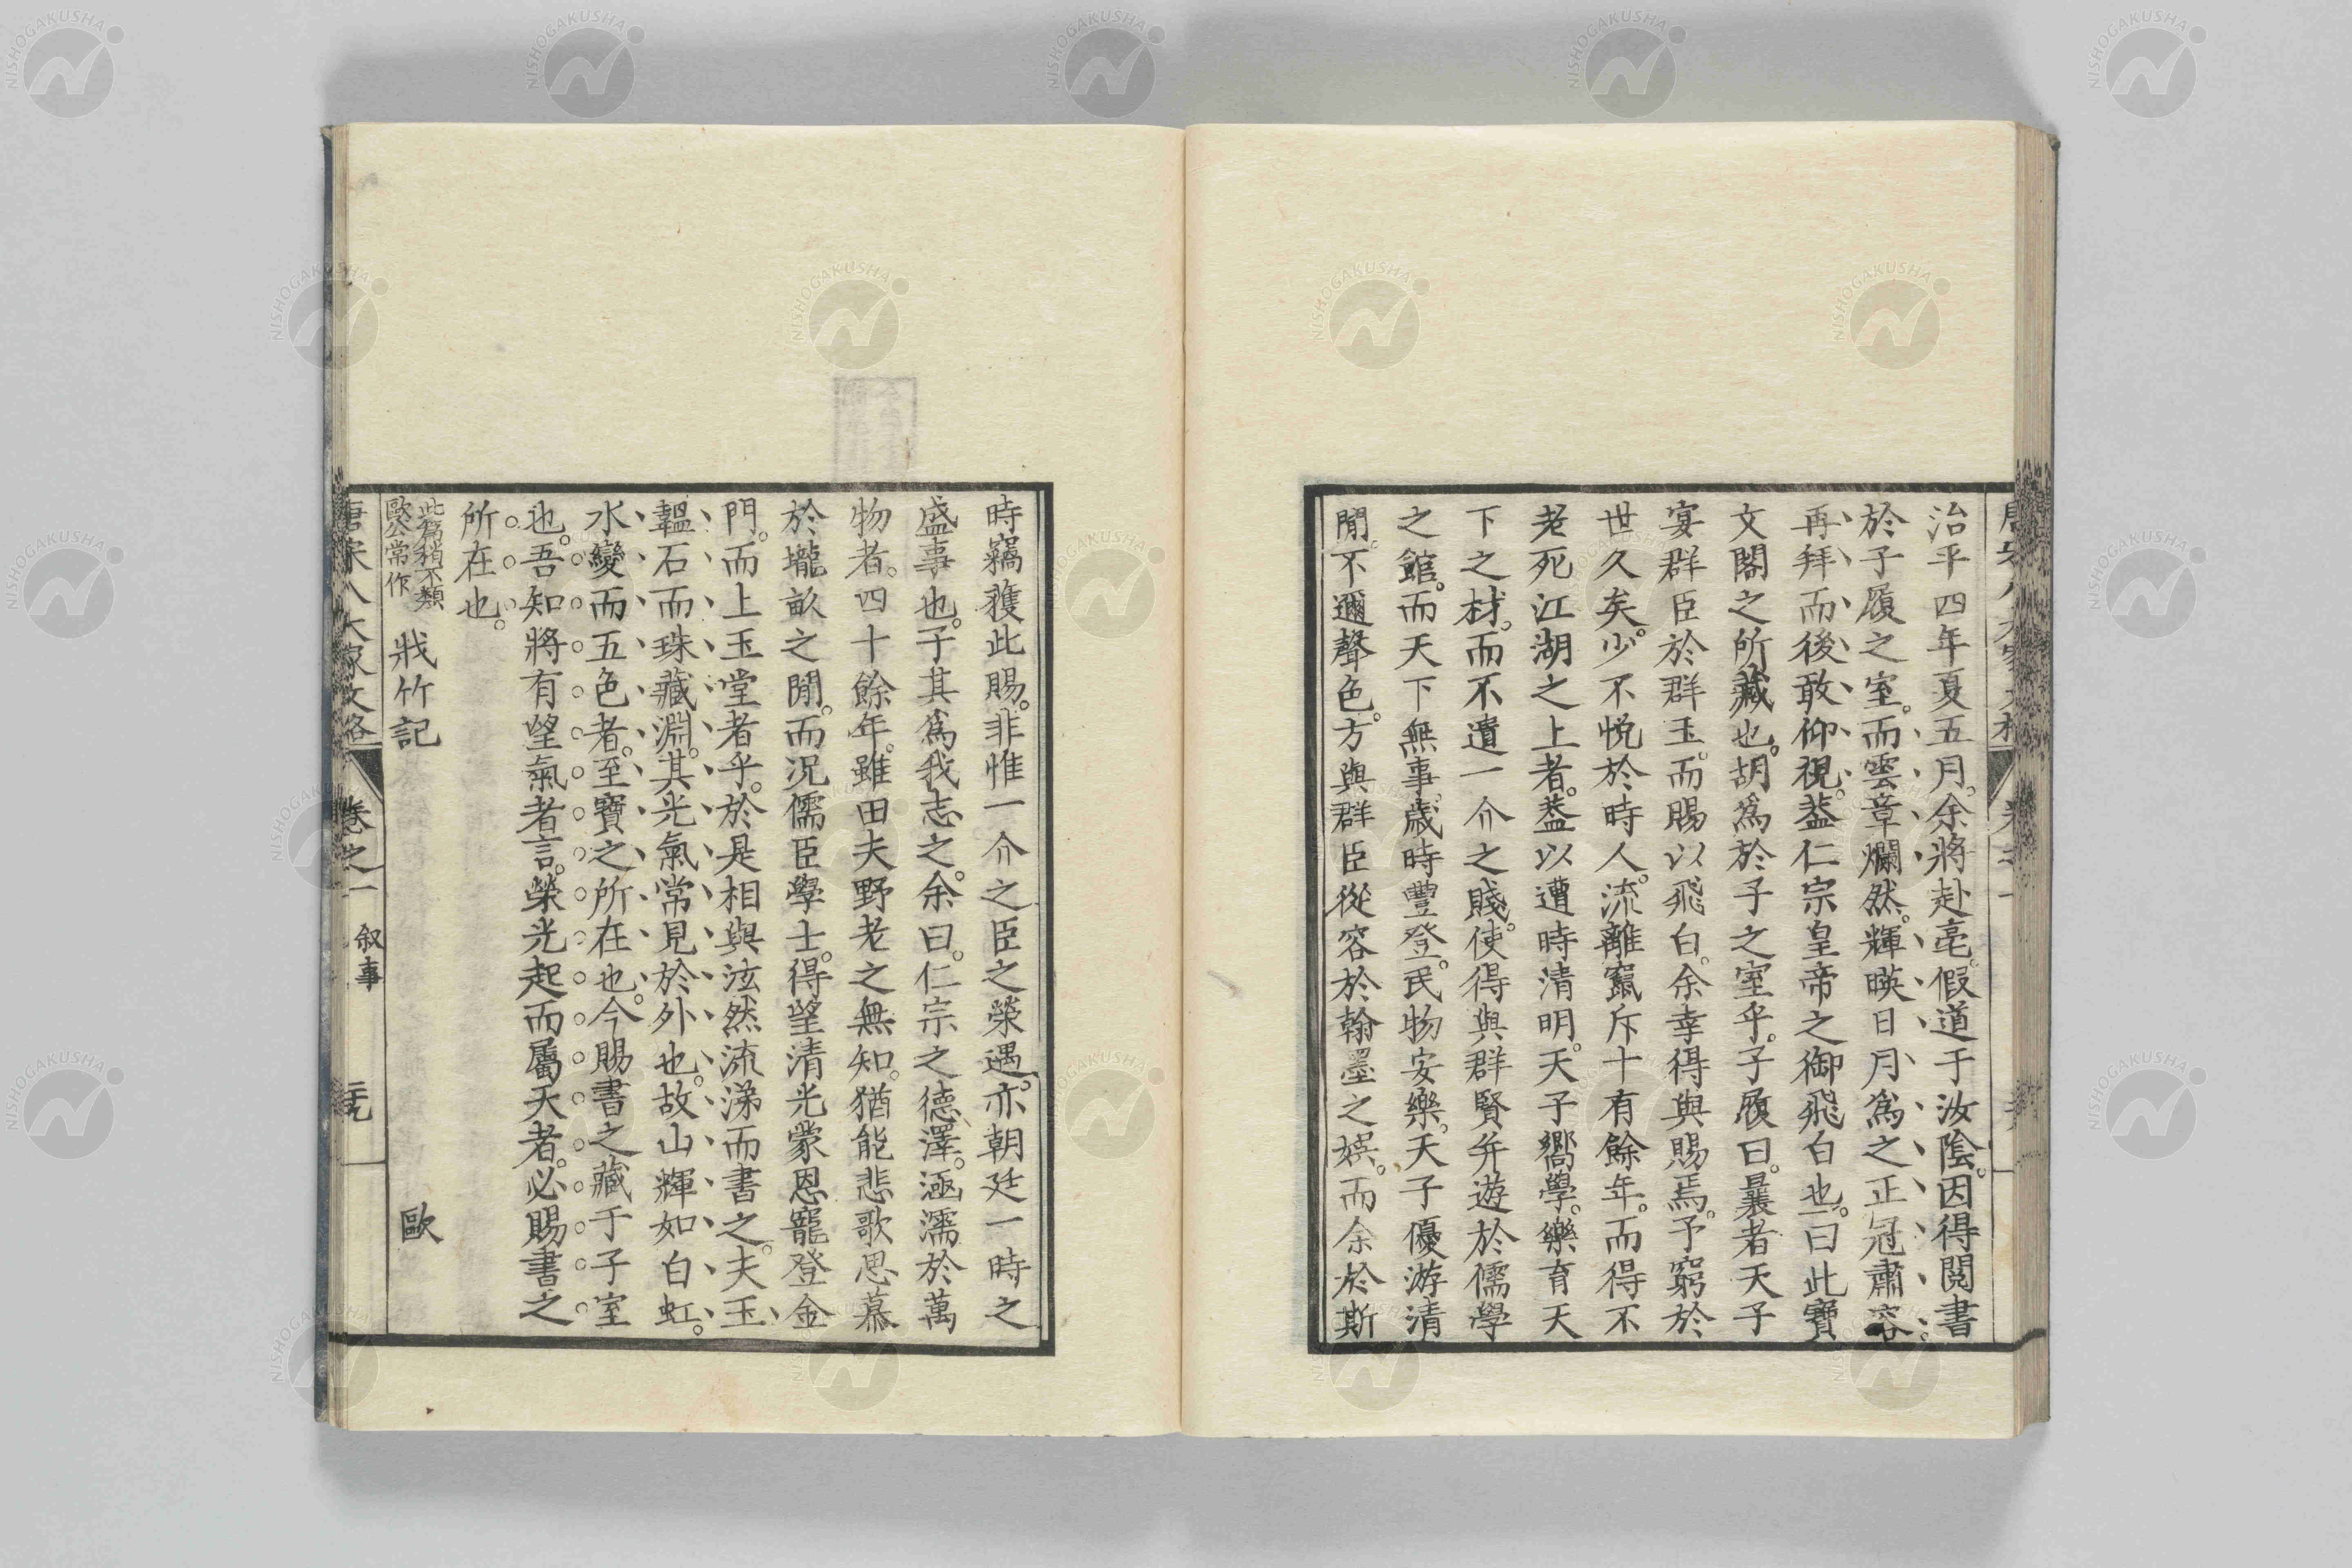 治平四年夏五月。余將赴亳。假道于汝陰。因得閱書
於子履之室。而雲章爛然。輝暎日月。爲之正冠肅容。
再拜而後敢仰視。葢仁宗皇帝之御飛白也。曰此寶
文閣之所藏也。胡爲於子之室乎。子履曰。曩者天子
宴群臣於群玉。而賜以飛白。余幸得與賜焉。予窮於
世久矣。少不悅於時人。流離竄斥十有餘年。而得不
老死江湖之上者。葢以遭時清明。天子嚮學。樂育天
下之材。而不遺一介之賤。使得與群賢并遊於儒學
之館。而天下無事。歲時豐登。民物安樂。天子優游清
閒。不邇聲色。方與群臣從容於翰墨之娯。而余於斯
時竊獲此賜。非惟一介之臣之榮遇。亦朝廷一時之
盛事也。子其爲我志之。余曰。仁宗之德澤。涵濡於萬
物者。四十餘年。雖田夫野老之無知。猶能悲歌思慕
於壠畝之閒。而況儒臣學士。得望清光蒙恩寵登金
門。而上玉堂者乎。於是相與泫然流涕而書之。夫玉
韞石而珠藏淵。其光氣常見於外也。故山輝如白虹。
水變而五色者。至寶之所在也。今賜書之藏于子室
也。吾知將有望氣者言。榮光起而屬天者。必賜書之
所在也。
此爲稍不類
歐公常作
戕竹記 歐
唐宋八大家文格 卷之一 叙事 二十九
NISHOGAKUSHA